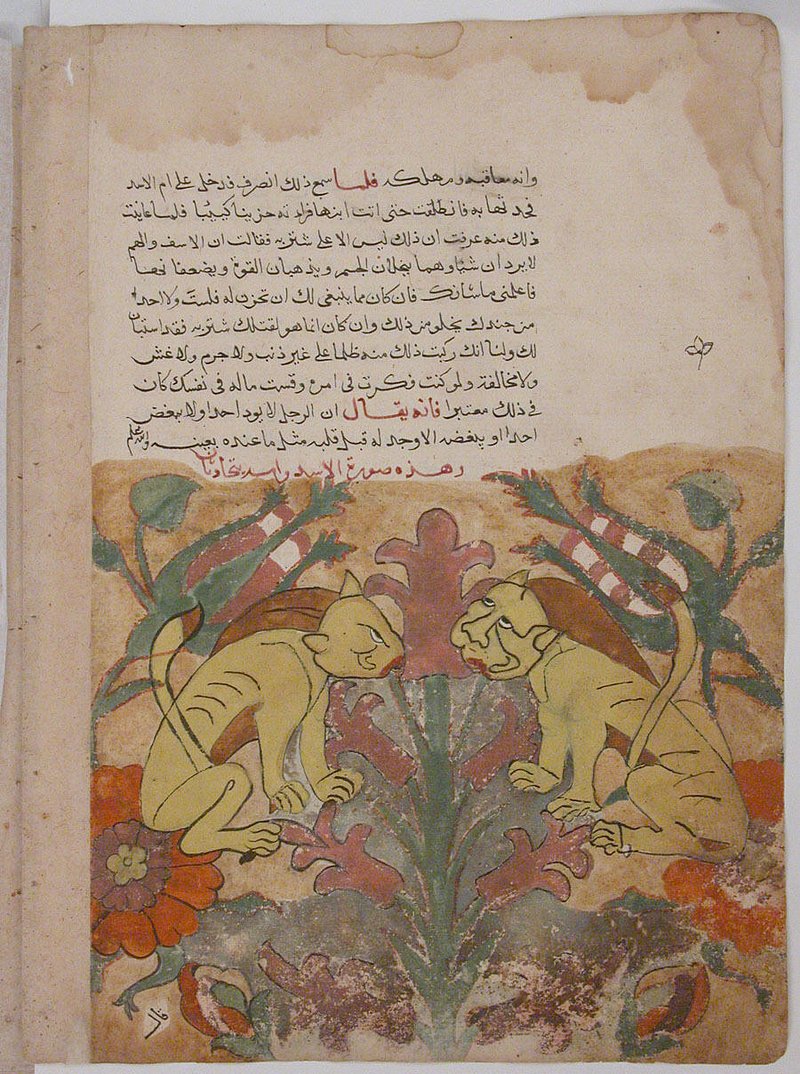 وانه معاقبه ومهلكه فلما سمع ذلك انصرف فدخل على ام الاسد
فحدثها به فانطلقت حتى اتت ابنها فراته حزينا كييبا فلما عاينت
ذلك منه عرفت ان ذلك ليس الا على شتربه فقالت ان الاسف والهم
لا يردان شيا وهما ينحلان الجسم ويذهبان القوة ويضعفانها
فاعلمني ما شانك فان كان مما ينبغي لك ان تحزن له فلست ولا احدا
من جندك يخلو من ذلك وان كان انما هو لقتلك شتربه فقد استبان
لك ولنا انك ركبت ذلك منه ظلما على غير ذنب ولا جرم ولا غش
ولا مخالفة ولو كنت فكرت في امره وقست ماله في نفسك كان
في ذلك معتبرا فانه يقال ان الرجل لا يود احدا ولا يبغض
احدا او يبغضه الا وجد له قبل قلبه مثل ما عنده بعينه
وهذه صورة الاسد واسد يتحادثان
قال